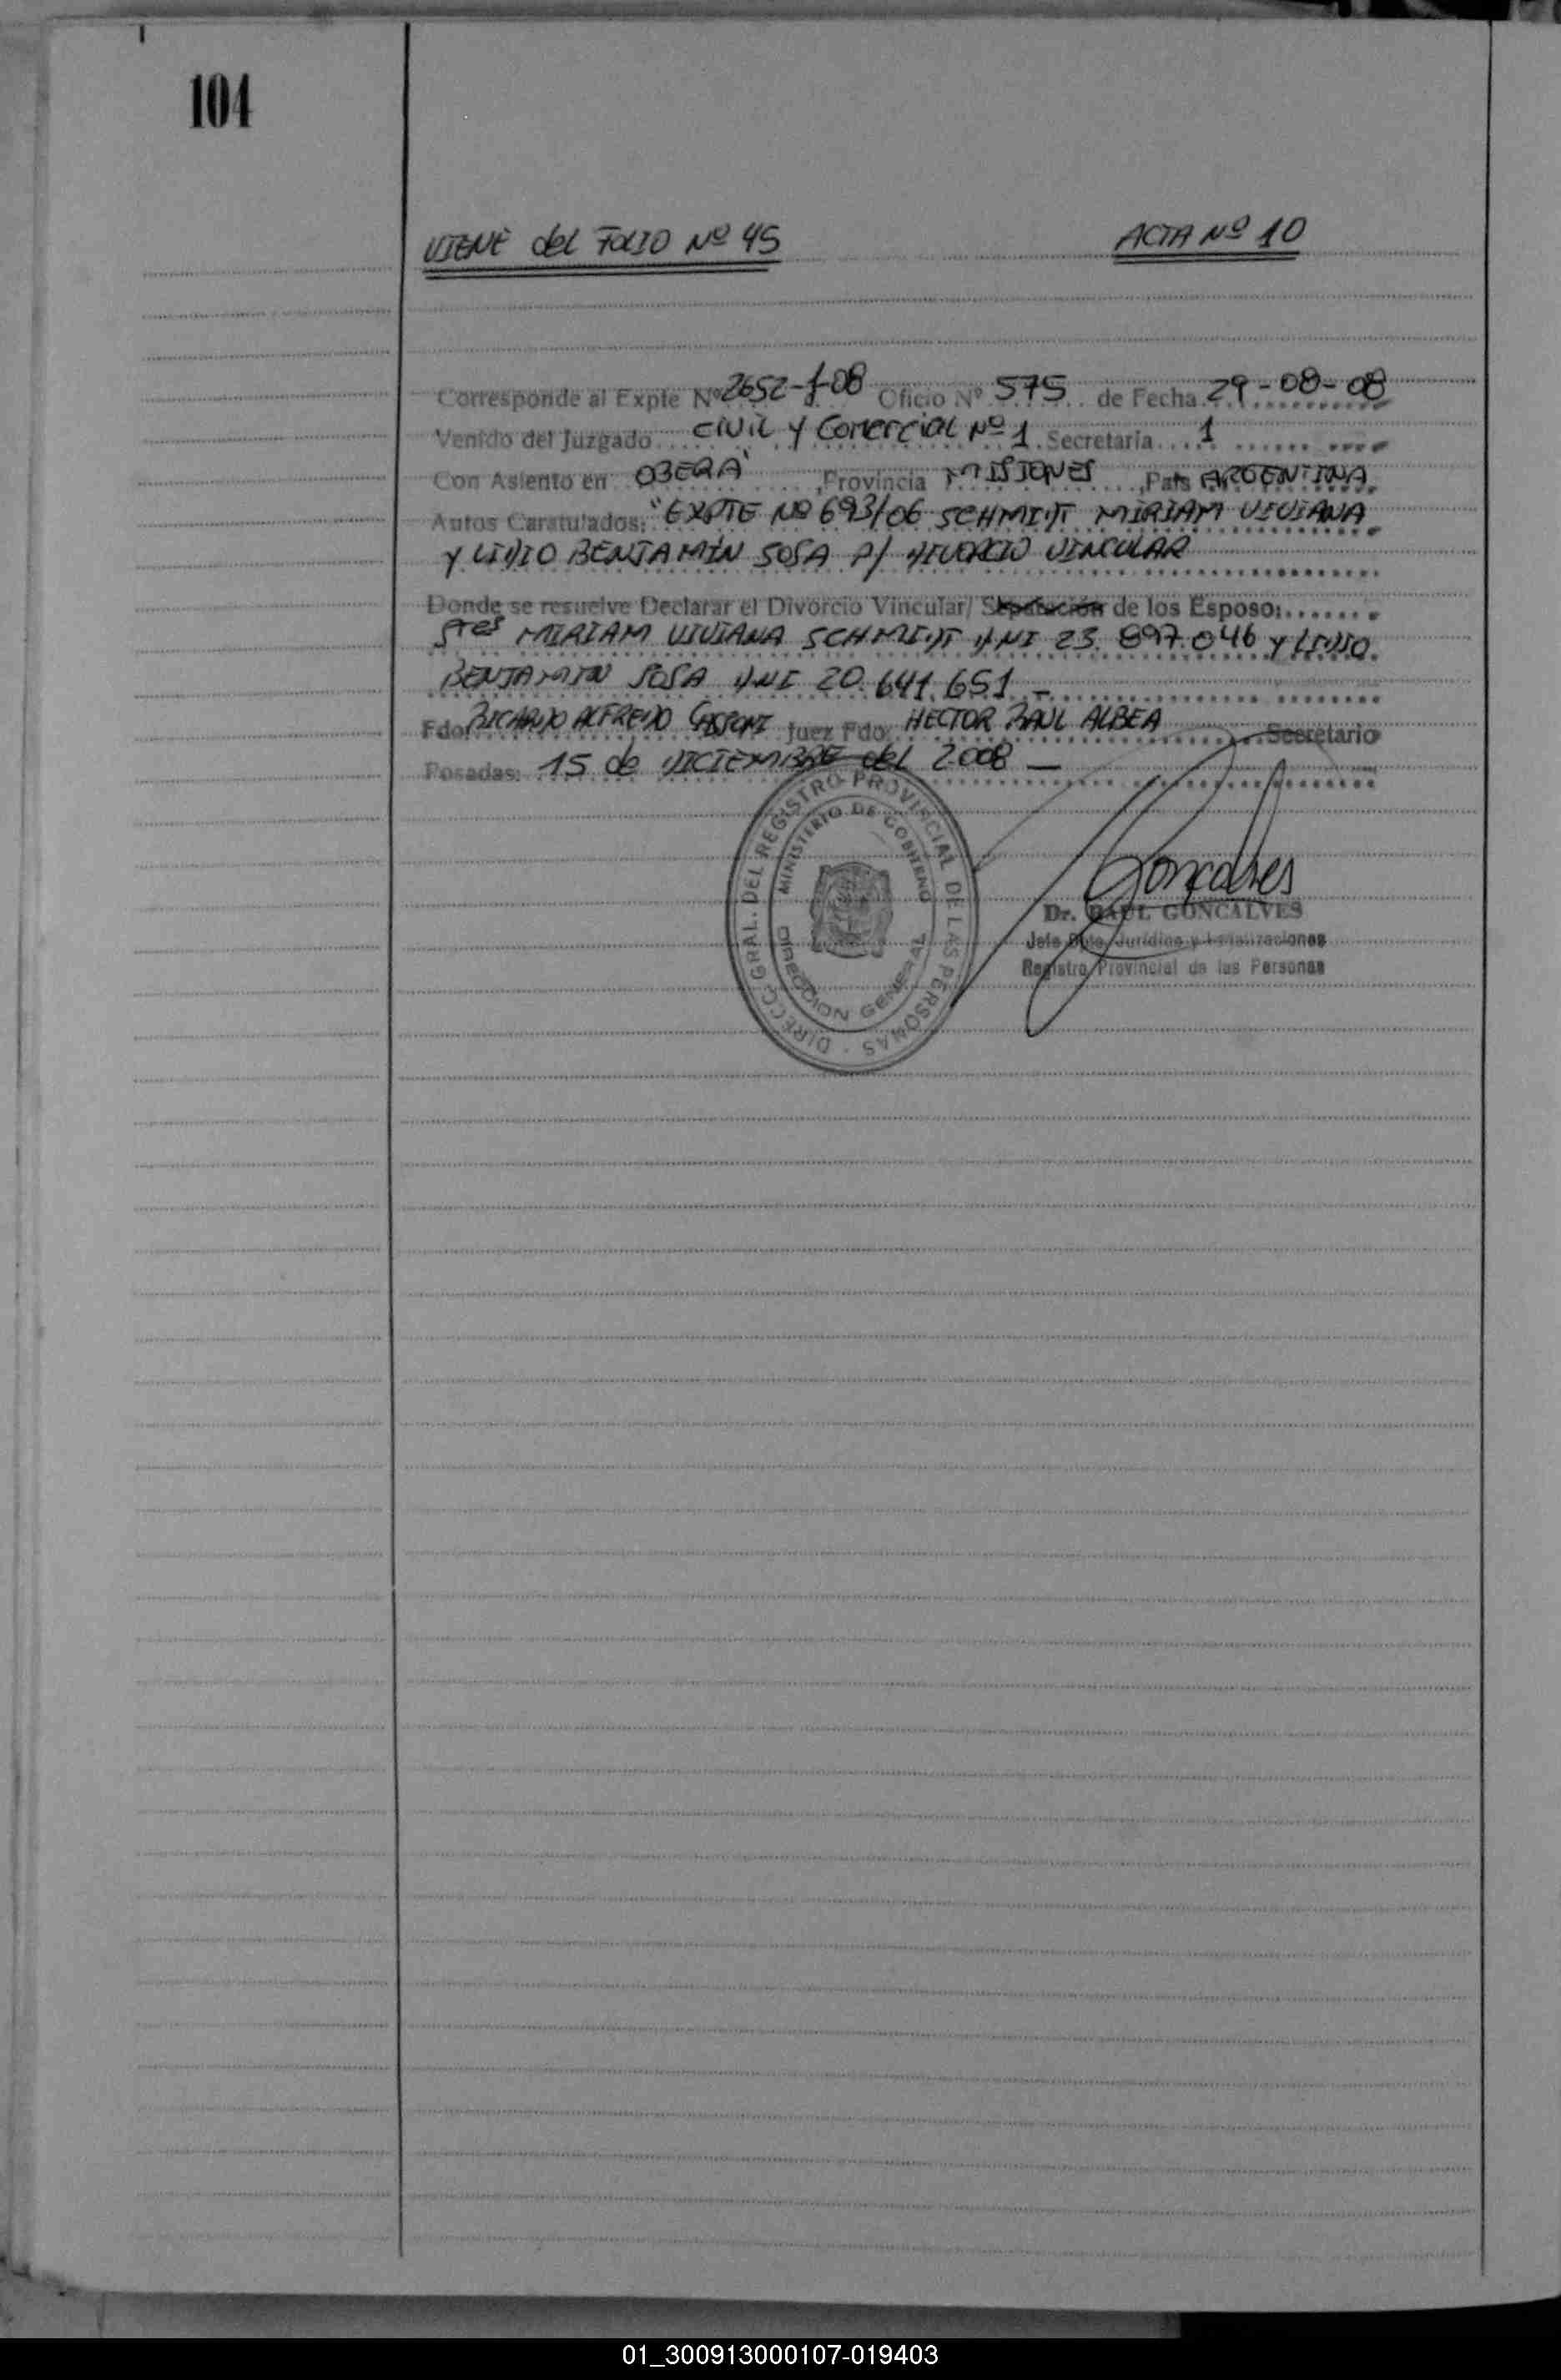 104
VIENE del FOLIO Nº 45 ACTA Nº 10
Corresponde al Expte Nº 2652-f-08 Oficio Nº 575 de Fecha 29-08-08
Venido del Juzgado Civil y Comercial Nº 1 Secretaria 1
Con Asiento en OBERA ,Provincia MISIONES ,Pais ARGENTINA
Autos Caratulados: "EXPTE Nº 693/06 SCHMIDT MIRIAM VIVIANA
y LIVIO BENJAMIN SOSA P/ DIVORCIO VINCULAR
Donde se resuelve Declarar el Divorcio Vincular/ Separación de los Esposo:
Sres MIRIAM VIVIANA SCHMIDT DNI 23.897.046 y LIVIO
BENJAMIN SOSA DNI 20.641.651 -
Fdo: RICARDO ALFREDO Juez Fdo: HECTOR RAUL ALBEA Secretario
Posadas: 15 de DICIEMBRE del 2008 —
DIRECC. GRAL. DEL REGISTRO PROVINCIAL DE LAS PERSONAS -
MINISTERIO DE GOBIERNO
DIRECCION GENERAL
Goncalves
Dr. RAUL GONCALVES
Jefe Dpto. Jurídico y Legalizaciones
Registro Provincial de las Personas
01_300913000107-019403